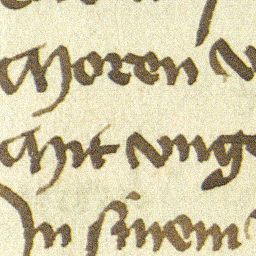 choren v
cht vnge
In sinem